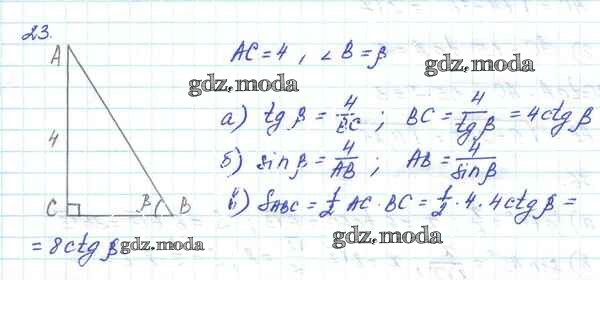 23.
A
AC = 4 , ∠ B = β
gdz.moda
gdz.moda
а) tg β = 4/BC ; BC = 4/tg β = 4ctg β
4
б) sin β = 4/AB ; AB = 4/sin β
C
β
B
в) S ABC = 1/2 AC · BC = 1/2 · 4 · 4ctg β =
= 8ctg β
gdz.moda
gdz.moda